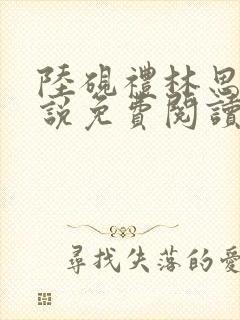 陸硯禮林思
說免費閱讀
尋找失落的愛